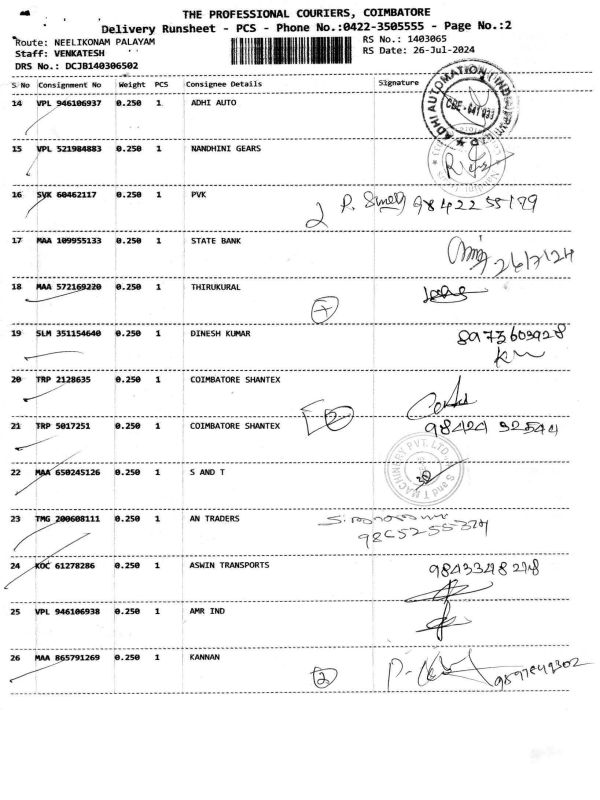 THE PROFESSIONAL COURIERS, COIMBATORE
Delivery Runsheet - PCS - Phone No.:0422-3505555 - Page No.:2
Route: NEELIKONAM PALAYAM RS No.: 1403065
Staff: VENKATESH RS Date: 26-Jul-2024
DRS No.: DCJB140306502
S No Consignment No Weight PCS Consignee Details Signature
14 VPL 946106937 0.250 1 ADHI AUTO
ADHI AUTOMATION
15 VPL 521984883 0.250 1 NANDHINI GEARS
16 SVK 60462117 0.250 1 PVK
17 MAA 109955133 0.250 1 STATE BANK 26/7/24
18 MAA 572169220 0.250 1 THIRUKURAL
19 SLM 351154640 0.250 1 DINESH KUMAR 8973603928
20 TRP 2128635 0.250 1 COIMBATORE SHANTEX
21 TRP 5017251 0.250 1 COIMBATORE SHANTEX 98424 32544
22 MAA 650245126 0.250 1 S AND T
S and T MACHINERY PVT. LTD.
23 TMG 200608111 0.250 1 AN TRADERS
24 KOC 61278286 0.250 1 ASWIN TRANSPORTS
25 VPL 946106938 0.250 1 AMR IND
26 MAA 865791269 0.250 1 KANNAN 2